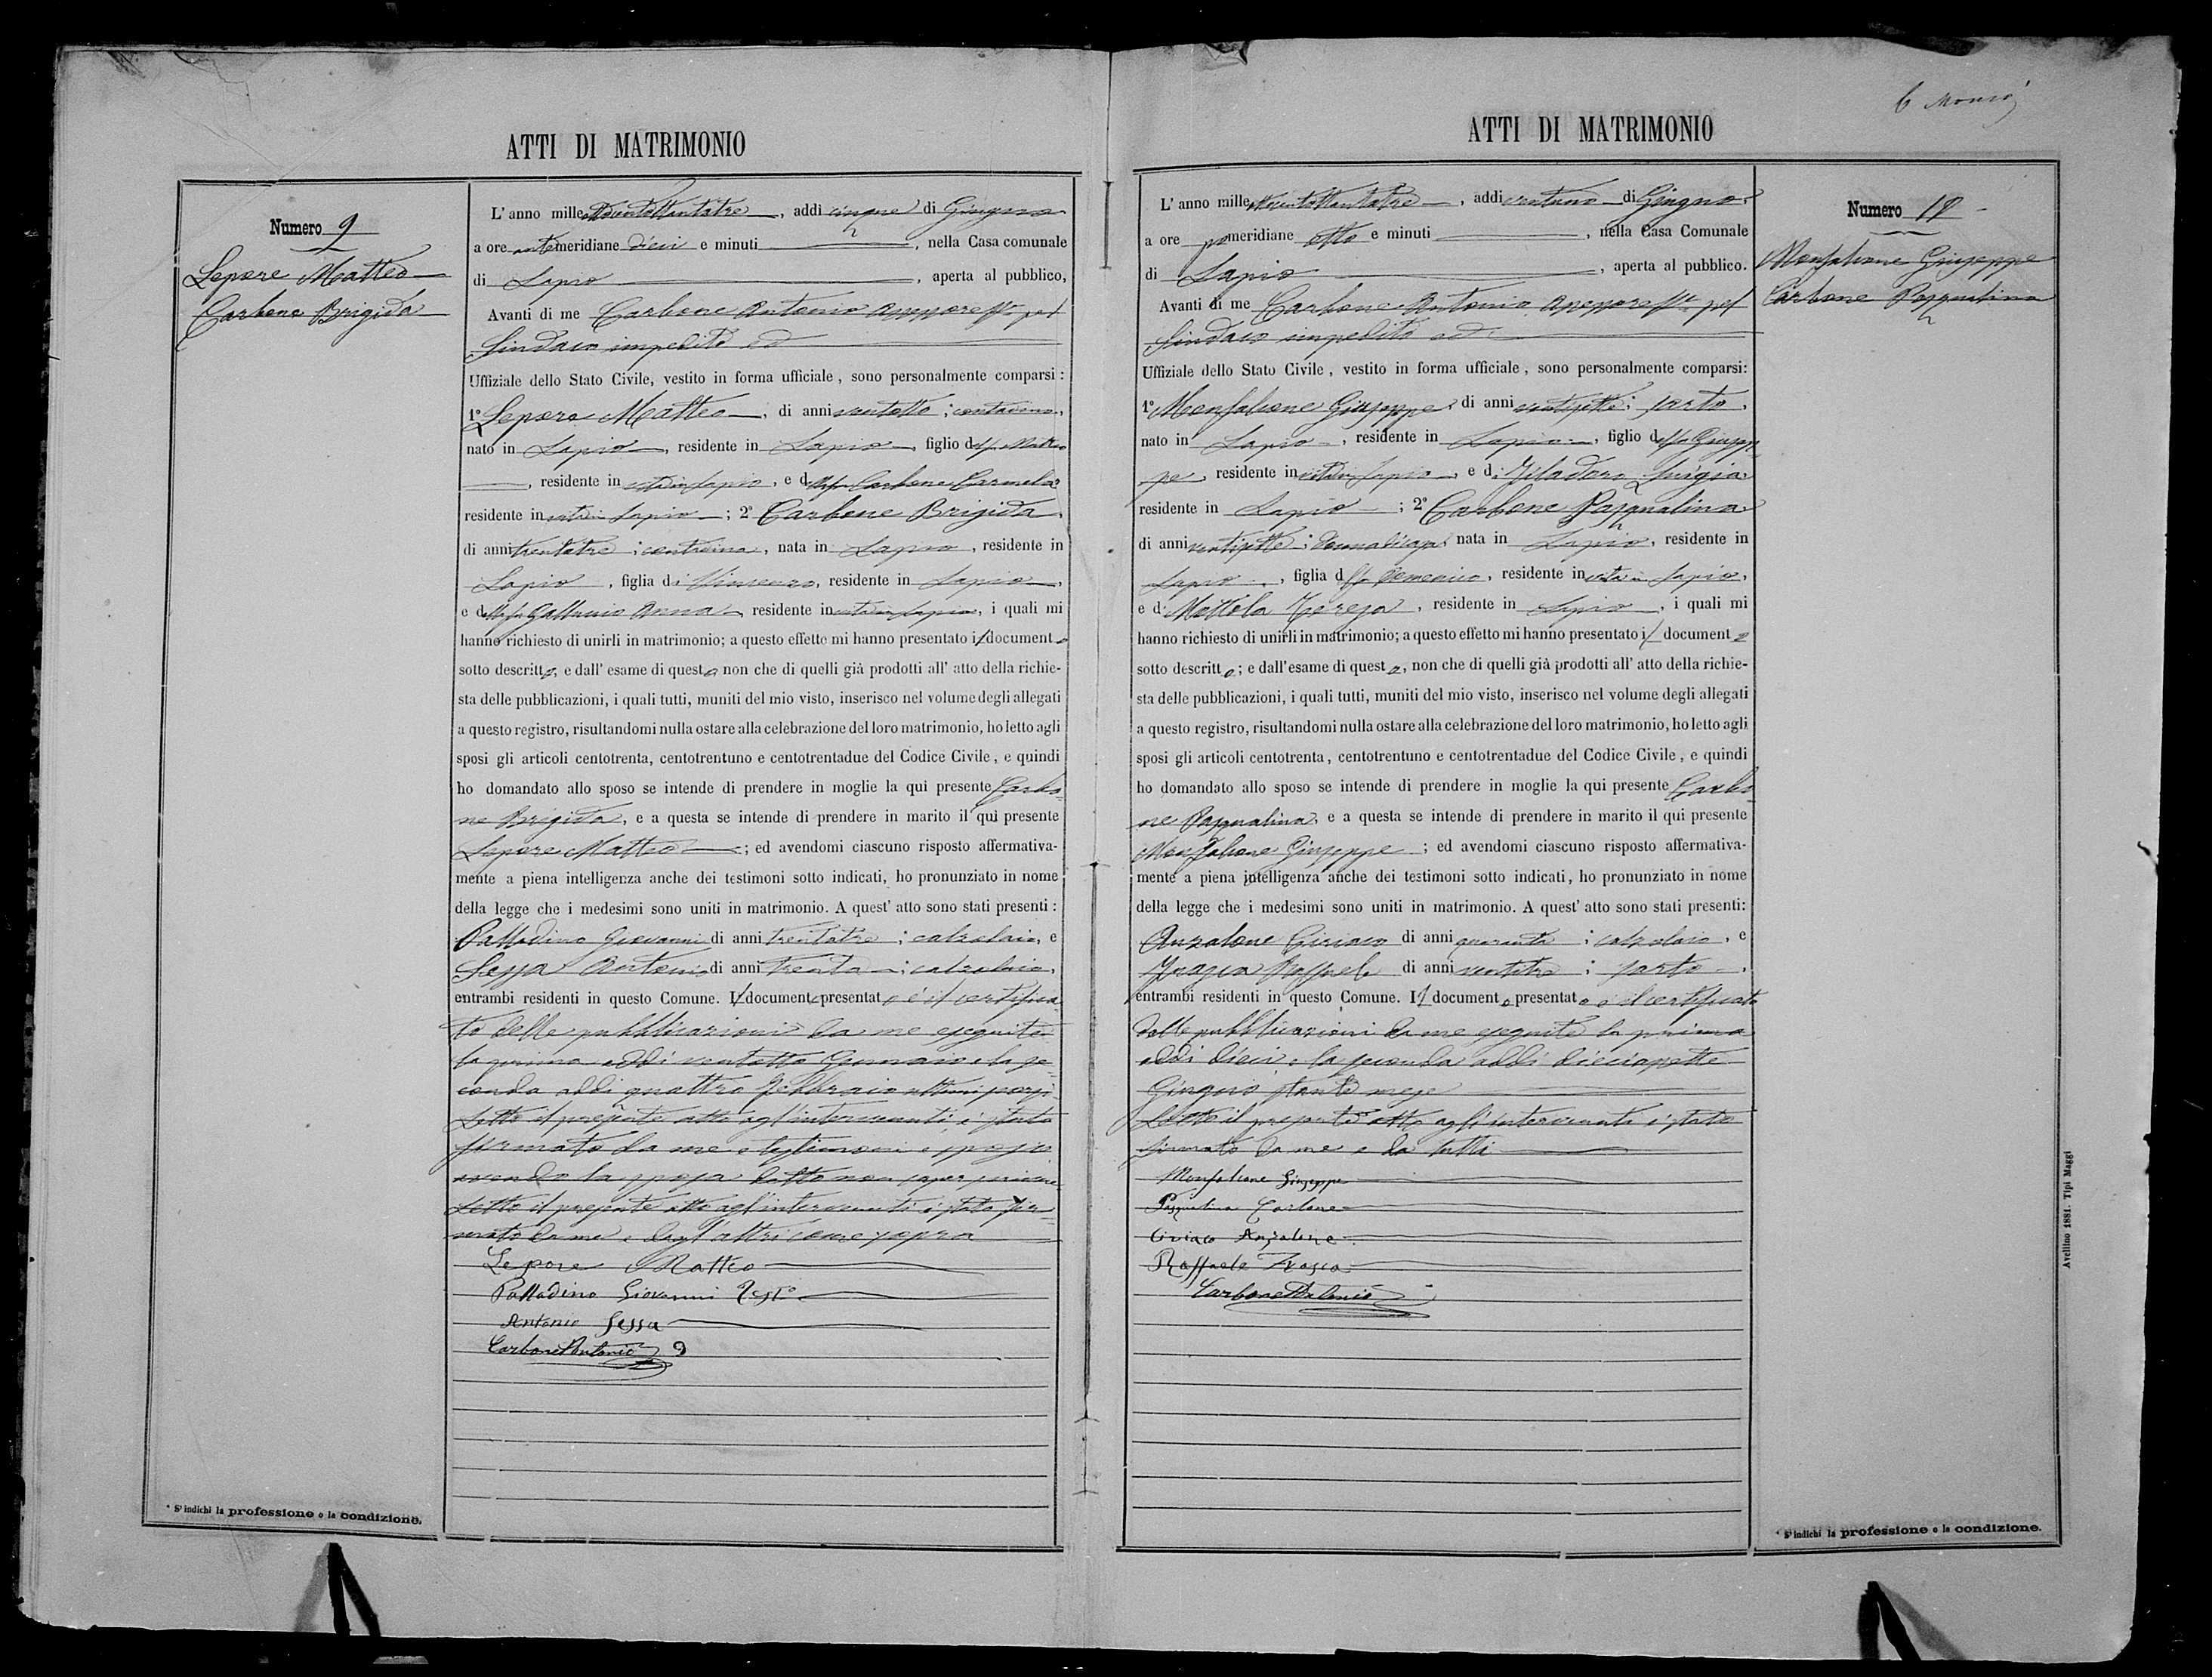 ATTI DI MATRIMONIO
Numero 9
Lepore Matteo
Carbone Brigida
L' anno milleottocentottantatre, addi cinque di Giugno
a ore antemeridiane dieci e minuti, nella Casa comunale
di Lapio, aperta al pubblico,
Avanti di me Carbone Antonio Assessore ff. pel
Sindaco impedito ed
Uffiziale dello Stato Civile, vestito in forma ufficiale, sono personalmente comparsi:
1° Lepore Matteo, di anni ventotto; contadino,
nato in Lapio, residente in Lapio, figlio del fu Matteo
, residente in vita in Lapio, e della fu Carbone Carmela
residente in vita in Lapio; 2° Carbone Brigida,
di anni trentatre; contadina, nata in Lapio, residente in
Lapio, figlia di Vincenzo, residente in Lapio,
e della fu Anna, residente in vita in Lapio, i quali mi
hanno richiesto di unirli in matrimonio; a questo effetto mi hanno presentato il documento
sotto descritto; e dall' esame di questo non che di quelli già prodotti all' atto della richie-
sta delle pubblicazioni, i quali tutti, muniti del mio visto, inserisco nel volume degli allegati
a questo registro, risultandomi nulla ostare alla celebrazione del loro matrimonio, ho letto agli
sposi gli articoli centotrenta, centotrentuno e centotrentadue del Codice Civile, e quindi
ho domandato allo sposo se intende di prendere in moglie la qui presente Carbo-
ne Brigida, e a questa se intende di prendere in marito il qui presente
Lepore Matteo; ed avendomi ciascuno risposto affermativa-
mente a piena intelligenza anche dei testimoni sotto indicati, ho pronunziato in nome
della legge che i medesimi sono uniti in matrimonio. A quest' atto sono stati presenti:
Palladino Giovanni di anni trentatre; calzolaio, e
Sessa Antonio di anni trenta; calzolaio,
entrambi residenti in questo Comune. Il documento presentato è il certifica-
to delle pubblicazioni da me eseguite
la prima addì ventotto Gennaio e la se-
conda addì quattro Febbraio ultimi scorsi
Letto il presente atto agl'intervenuti è stato
firmato da me e testimoni e sposo
avendo la sposa detto non saper scrivere
Letto il presente atto agl'intervenuti è stato fir-
mato da me e dagl'altri come sopra
Lepore Matteo
Palladino Giovanni Test°
Antonio Sessa
Carbone Antonio
* S' indichi la professione o la condizione.
ATTI DI MATRIMONIO
Numero 10
Monfalcone Giuseppe
Carbone Pasqualina
L' anno milleottocentottantatre, addi ventuno di Giugno
a ore pomeridiane otto e minuti, nella Casa Comunale
di Lapio, aperta al pubblico.
Avanti di me Carbone Antonio Assessore ff. pel
Sindaco impedito ed
Uffiziale dello Stato Civile, vestito in forma ufficiale, sono personalmente comparsi:
1° Monfalcone Giuseppe, di anni ventisette; sarto,
nato in Lapio, residente in Lapio, figlio del fu Giusep-
pe, residente in vita in Lapio, e di Luigia
residente in Lapio; 2° Carbone Pasqualina
di anni ventisette; donna di casa, nata in Lapio, residente in
Lapio, figlia del fu Domenico, residente in vita in Lapio,
e di Mottola Teresa, residente in Lapio, i quali mi
hanno richiesto di unirli in matrimonio; a questo effetto mi hanno presentato il documento
sotto descritto; e dall' esame di questo, non che di quelli già prodotti all' atto della richie-
sta delle pubblicazioni, i quali tutti, muniti del mio visto, inserisco nel volume degli allegati
a questo registro, risultandomi nulla ostare alla celebrazione del loro matrimonio, ho letto agli
sposi gli articoli centotrenta, centotrentuno e centotrentadue del Codice Civile, e quindi
ho domandato allo sposo se intende di prendere in moglie la qui presente Carbo-
ne Pasqualina, e a questa se intende di prendere in marito il qui presente
Monfalcone Giuseppe; ed avendomi ciascuno risposto affermativa-
mente a piena intelligenza anche dei testimoni sotto indicati, ho pronunziato in nome
della legge che i medesimi sono uniti in matrimonio. A quest' atto sono stati presenti:
Anzalone Ciriaco di anni quaranta; calzolaio, e
Raffaele di anni ventitre; sarto,
entrambi residenti in questo Comune. Il documento presentato è il certificato
delle pubblicazioni da me eseguite la prima
addì dieci e la seconda addì diciassette
Giugno stante mese
Letto il presente atto agli intervenuti è stato
firmato da me e da tutti
Monfalcone Giuseppe
Pasqualina Carbone
Ciriaco Anzalone
Raffaele
Carbone Antonio
* S' indichi la professione o la condizione.
Avellino 1881. Tipi Maggi